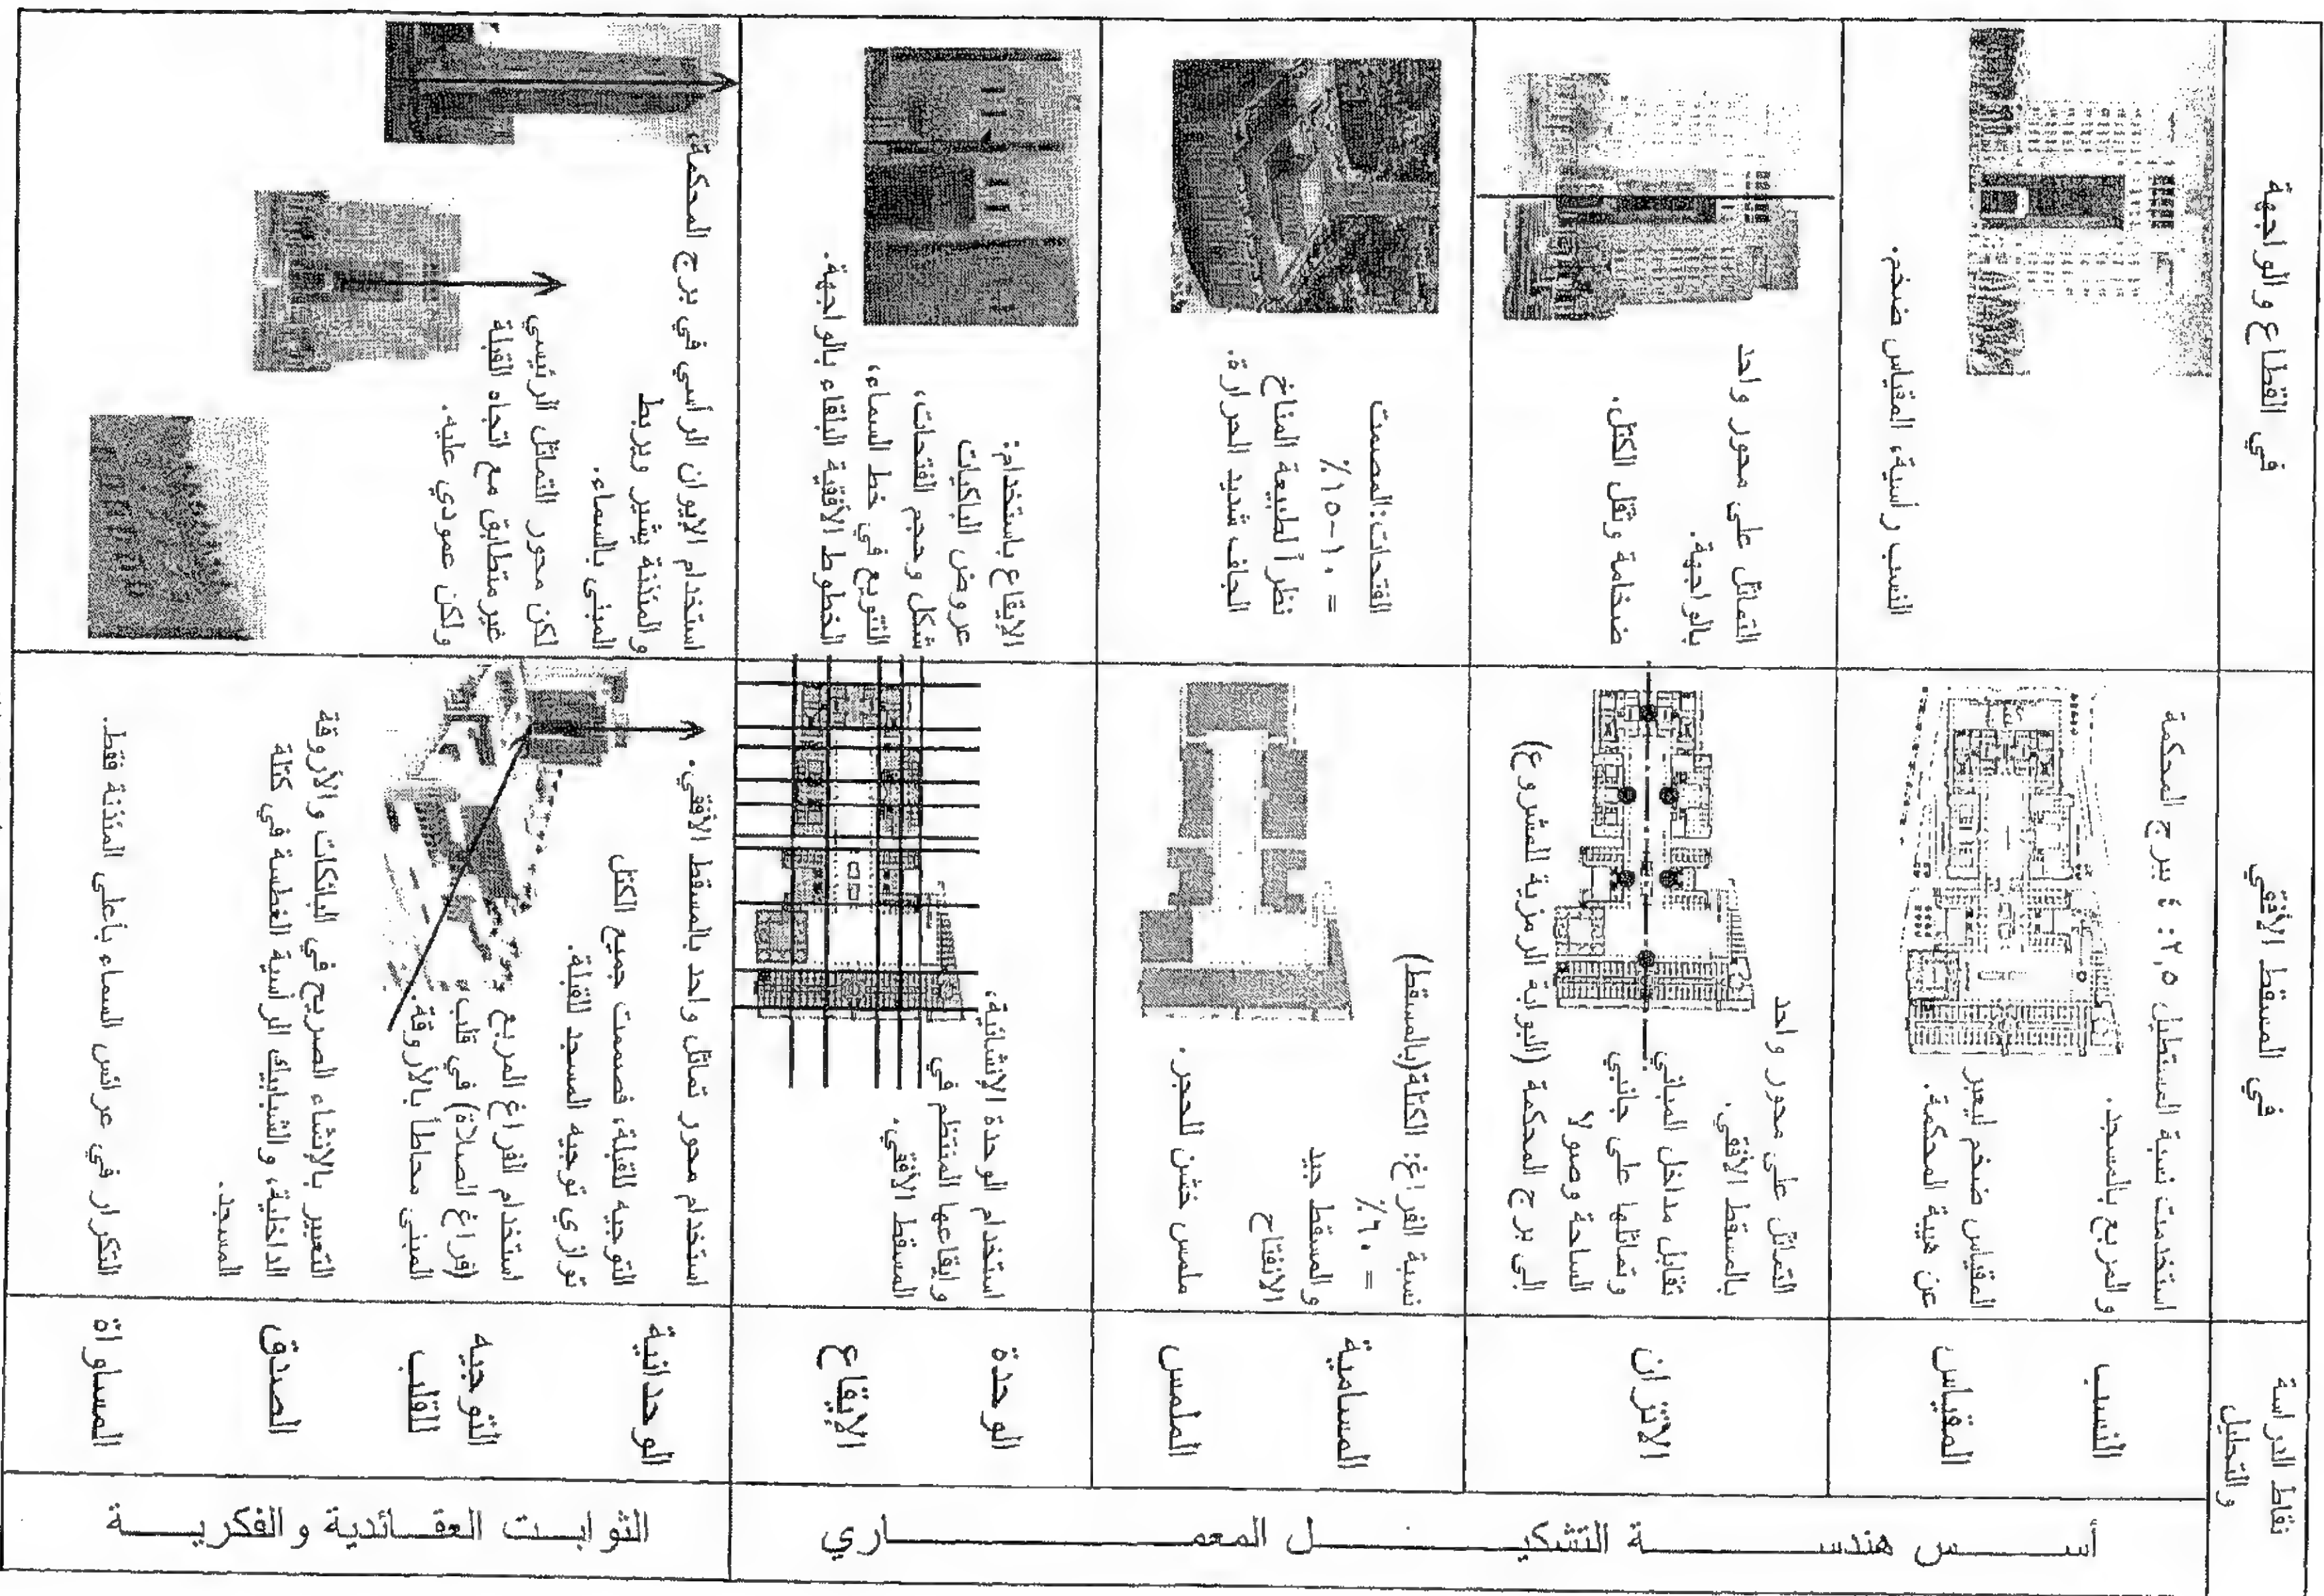 نقاط الدراسة
والتحليل
في المسقط الأفقي
في القطاع والواجهة
أسس هندسة التشكيل المعماري
النسب
المقياس
استخدمت نسبة المستطيل ٢,٥: ٤ ببرج المحكمة
والمربع بالمسجد.
المقياس ضخم ليعبر
عن هيبة المحكمة.
النسب رأسية، المقياس ضخم.
الاتزان
التماثل على محور واحد
بالمسقط الأفقي.
تقابل مداخل المباني
وتماثلها على جانبي
الساحة وصولا
إلى برج المحكمة (البوابة الرمزية للمشروع)
التماثل على محور واحد
بالواجهة.
ضخامة وثقل الكتل.
المسامية
الملمس
نسبة الفراغ: الكتلة(بالمسقط)
= ٦٠٪
والمسقط جيد
الانفتاح
ملمس خشن للحجر.
الفتحات:المصمت
= ١٠-١٥٪
نظراً لطبيعة المناخ
الجاف شديد الحرارة.
الوحدة
الإيقاع
استخدام الوحدة الإنشائية،
وإيقاعها المنتظم في
المسقط الأفقي.
الإيقاع باستخدام:
عروض الباكيات
شكل وحجم الفتحات،
التنويع في خط السماء،
الخطوط الأفقية البلقاء بالواجهة.
الثوابت العقائدية والفكرية
الوحدانية
التوجيه
للقلب
الصدق
المساواة
استخدام محور تماثل واحد بالمسقط الأفقي.
التوجيه للقبلة، فصممت جميع الكتل
توازي توجيه المسجد للقبلة.
استخدام الفراغ المربع
(فراغ الصلاة) في قلب
المبنى محاطاً بالأروقة.
التعبير بالإنشاء الصريح في البائكات والأروقة
الداخلية، والشبابيك الرأسية الغطسة في كتلة
المسجد.
التكرار في عرائس السماء بأعلى المئذنة فقط.
استخدام الإيوان الرأسي في برج المحكمة،
والمئذنة يشير ويربط
المبنى بالسماء.
لكن محور التماثل الرئيسي
غير متطابق مع اتجاه القبلة
ولكن عمودي عليه.